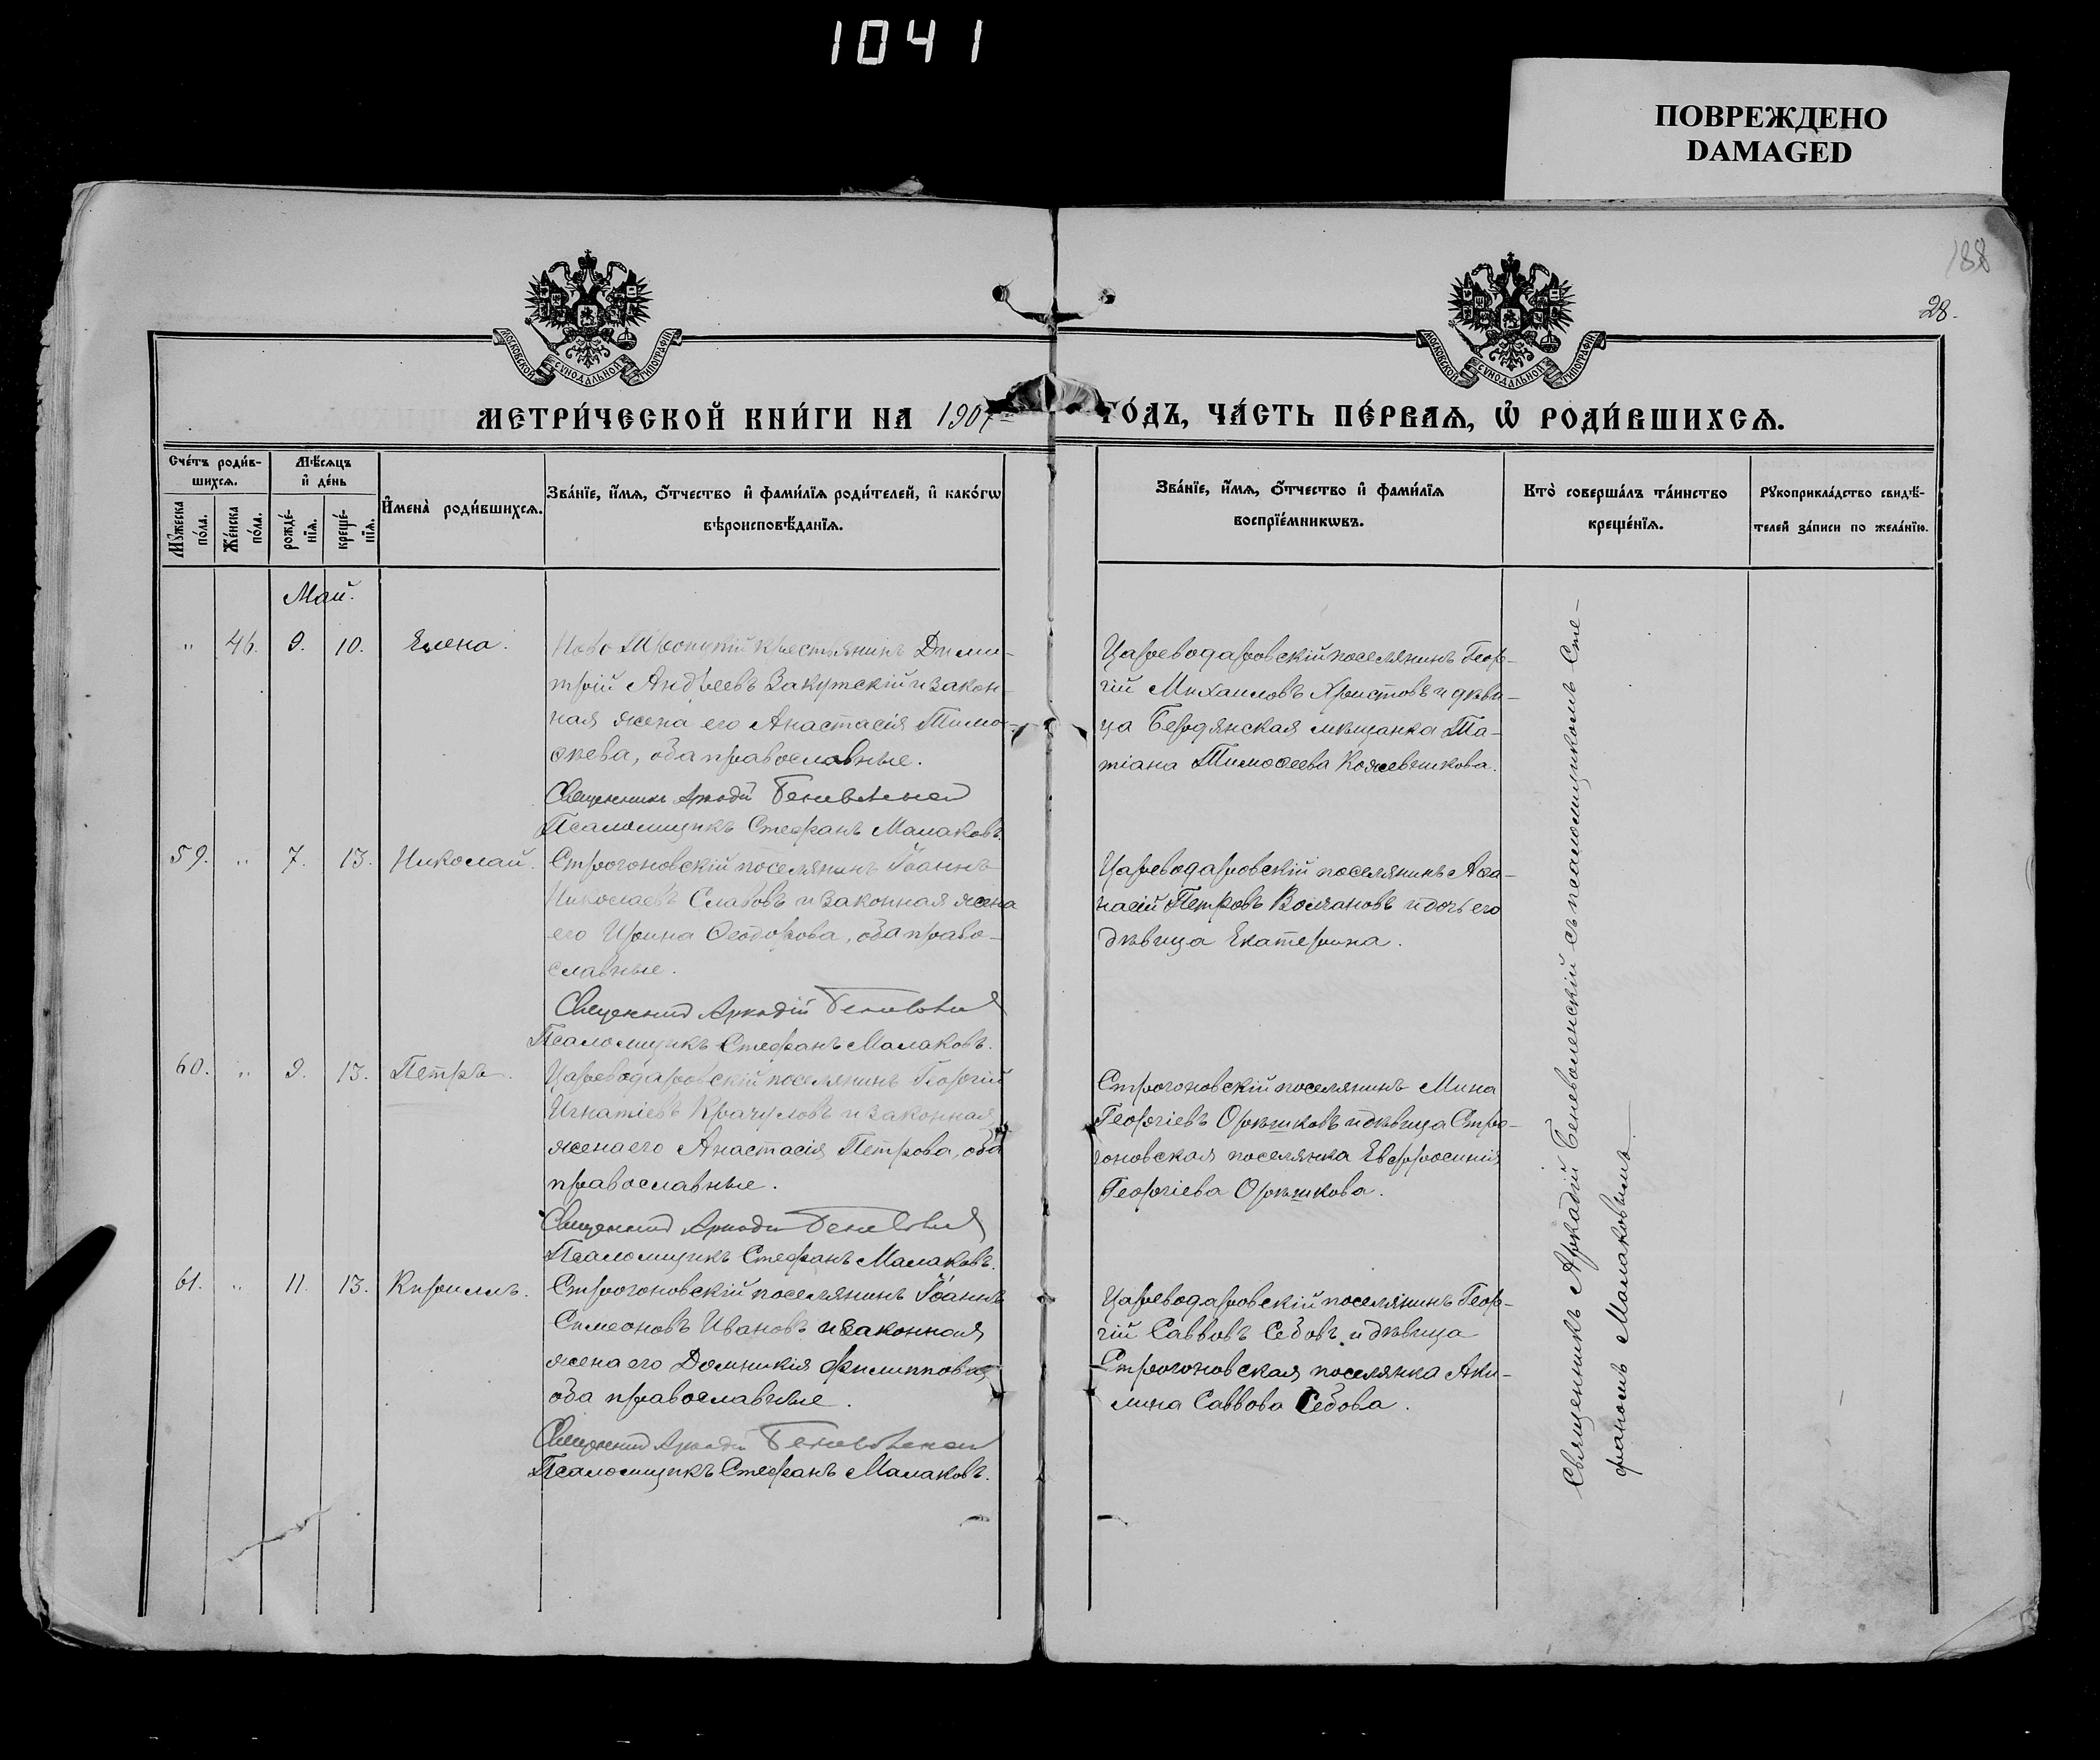 1041
ПОВРЕЖДЕНО
DAMAGED
188
28.
МОСКОВСКОЙ СУНОДАЛЬНОЙ ТИПОГРАФІИ
МОСКОВСКОЙ СУНОДАЛЬНОЙ ТИПОГРАФІИ
МЕТРИ́ЧЕСКОЙ КНИ́ГИ НА 1907 ГО́ДЪ, ЧА́СТЬ ПЕ́РВАѦ, Ѿ РОДИ́ВШИХСѦ.
Сче́тъ роди́в-
шихсѧ.
Мꙋжеска по́ла.
Же́нска по́ла.
Мѣ́сѧцъ
и҆ де́нь
рожде́-
нїѧ.
креще́-
нїѧ.
И҆мена̀ роди́вшихсѧ.
Зва́нїе, и҆́мѧ, ѻ҆́тчество и҆ фами́лїѧ роди́телей, и҆ како́гѡ
вѣроисповѣ́данїѧ.
Зва́нїе, и҆́мѧ, ѻ҆́тчество и҆ фами́лїѧ
воспрїе́мникѡвъ.
Кто̀ соверша́лъ та́инство
креще́нїѧ.
Рꙋкоприкла́дство свидѣ́-
телей за́писи по жела́нїю.
Май.
" 46. 9. 10. Елена.
Ново Троицкій крестьянинъ Дими-
трій Андреевъ Закутскій и закон-
ная жена его Анастасія Тимо-
ѳеева, оба православные.
Священникъ Аркадій Беневоленскій
Псаломщикъ Стефанъ Малаковъ.
Цареводаровскій поселянинъ Геор-
гій Михаиловъ Христовъ и дѣви-
ца Бердянская мѣщанка Та-
тіана Тимоѳеева Кожевникова.
59. " 7. 13. Николай.
Строгоновскій поселянинъ Іоаннъ
Николаевъ Славовъ и законная жена
его Ирина Ѳеодорова, оба право-
славные.
Священникъ Аркадій Беневоленскій
Псаломщикъ Стефанъ Малаковъ.
Цареводаровскій поселянинъ Аѳа-
насій Петровъ Волкановъ и дочь его
дѣвица Екатерина.
60. " 9. 13. Петръ.
Цареводаровскій поселянинъ Георгій
Игнатіевъ Крачуловъ и законная
жена его Анастасія Петрова, оба
православные.
Священникъ Аркадій Беневоленскій
Псаломщикъ Стефанъ Малаковъ.
Строгоновскій поселянинъ Мина
Георгіевъ Орѣшковъ и дѣвица Стро-
гоновская поселянка Евфросинія
Георгіева Орѣшкова.
61. " 11. 13. Кириллъ.
Строгоновскій поселянинъ Іоаннъ
Симеоновъ Ивановъ и законная
жена его Домникія Филиппова,
оба православные.
Священникъ Аркадій Беневоленскій
Псаломщикъ Стефанъ Малаковъ.
Цареводаровскій поселянинъ Геор-
гій Саввовъ Себовъ и дѣвица
Строгоновская поселянка Аки-
лина Саввова Себова.
Священникъ Аркадій Беневоленскій съ псаломщикомъ Сте-
фаномъ Малаковымъ.